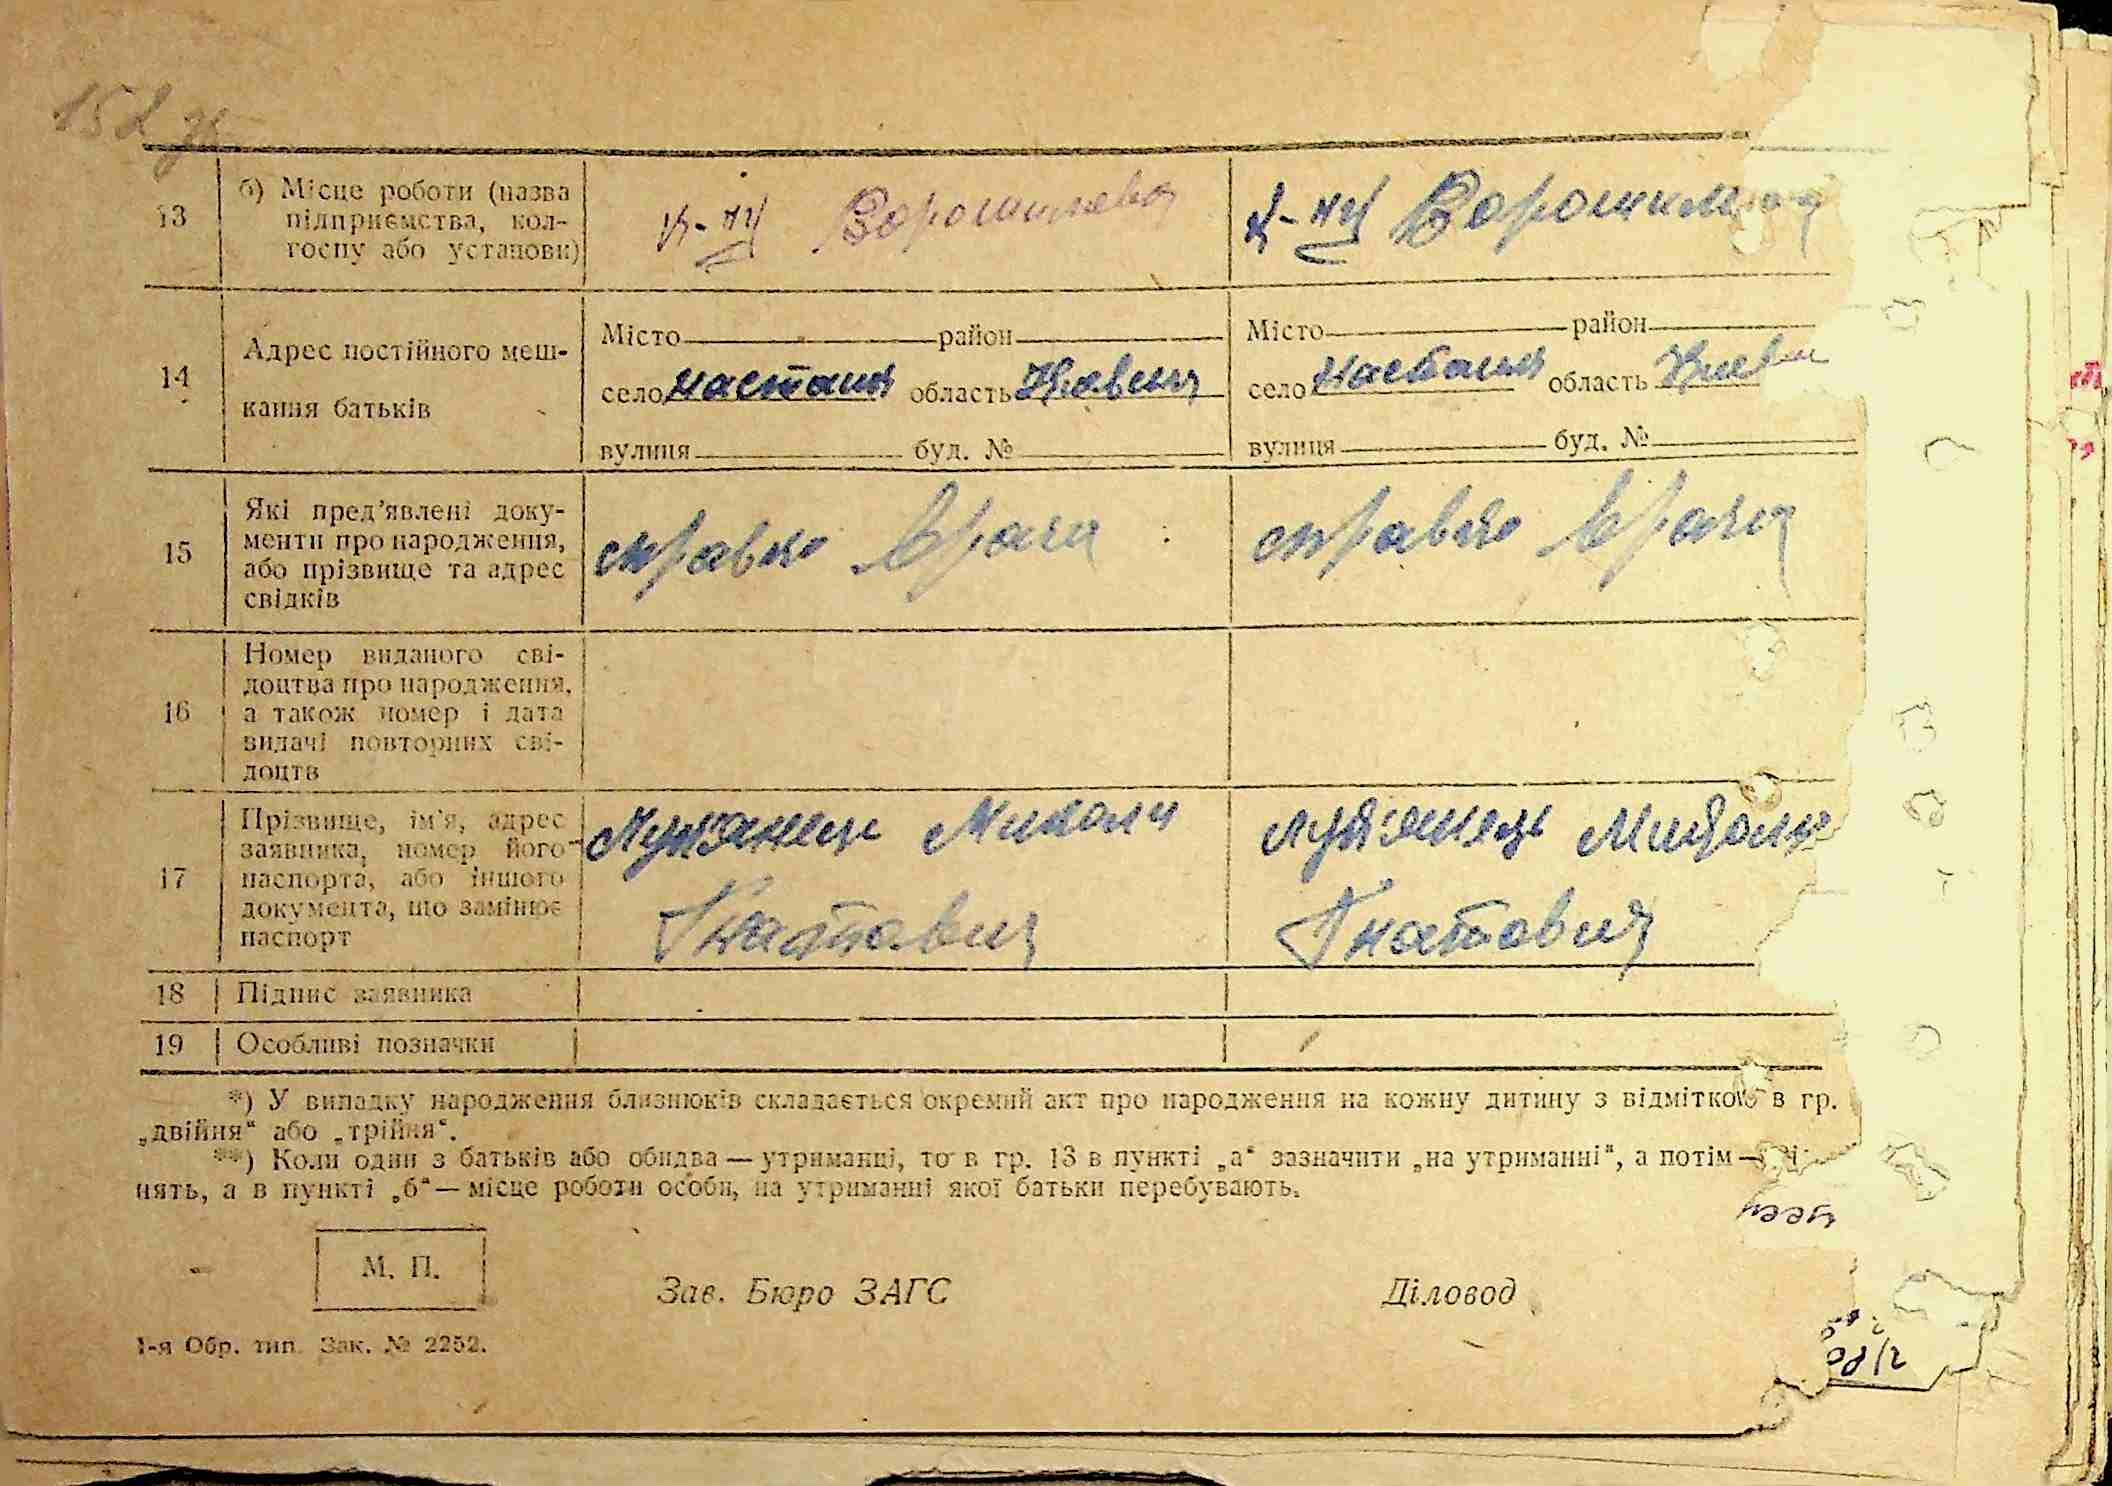 152
13
б) Місце роботи (назва
підприємства, кол-
госпу або установи)
к-п Ворошилова
к-п Ворошилова
14
Адрес постійного меш-
кання батьків
Місто район
село Насташк область Київськ
вулиця буд. №
Місто район
село Насташк область Київ
вулиця буд. №
15
Які пред’явлені доку-
менти про народження,
або прізвище та адрес
свідків
справка врача
справка врача
16
Номер виданого сві-
доцтва про народження,
а також номер і дата
видачі повторних сві-
доцтв
17
Прізвище, ім’я, адрес
заявника, номер його
паспорта, або іншого
документа, що замінює
паспорт
Лук'янець Микола
Гнатович
Лук'янець Микола
Гнатович
18 Підпис заявника
19 Особливі позначки
*) У випадку народження близнюків складається окремий акт про народження на кожну дитину з відміткою в гр.
„двійня“ або „трійня“.
**) Коли один з батьків або обидва — утриманці, то в гр. 13 в пункті „а“ зазначити „на утриманні“, а потім —
нять, а в пункті „б“ — місце роботи особи, на утриманні якої батьки перебувають.
М. П.
Зав. Бюро ЗАГС
Діловод
1-я Обр. тип. Зак. № 2252.